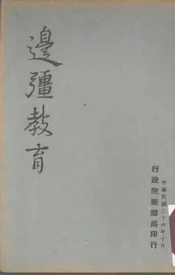 邊疆教育
中華民國三十六年十月
行政院新聞局印行